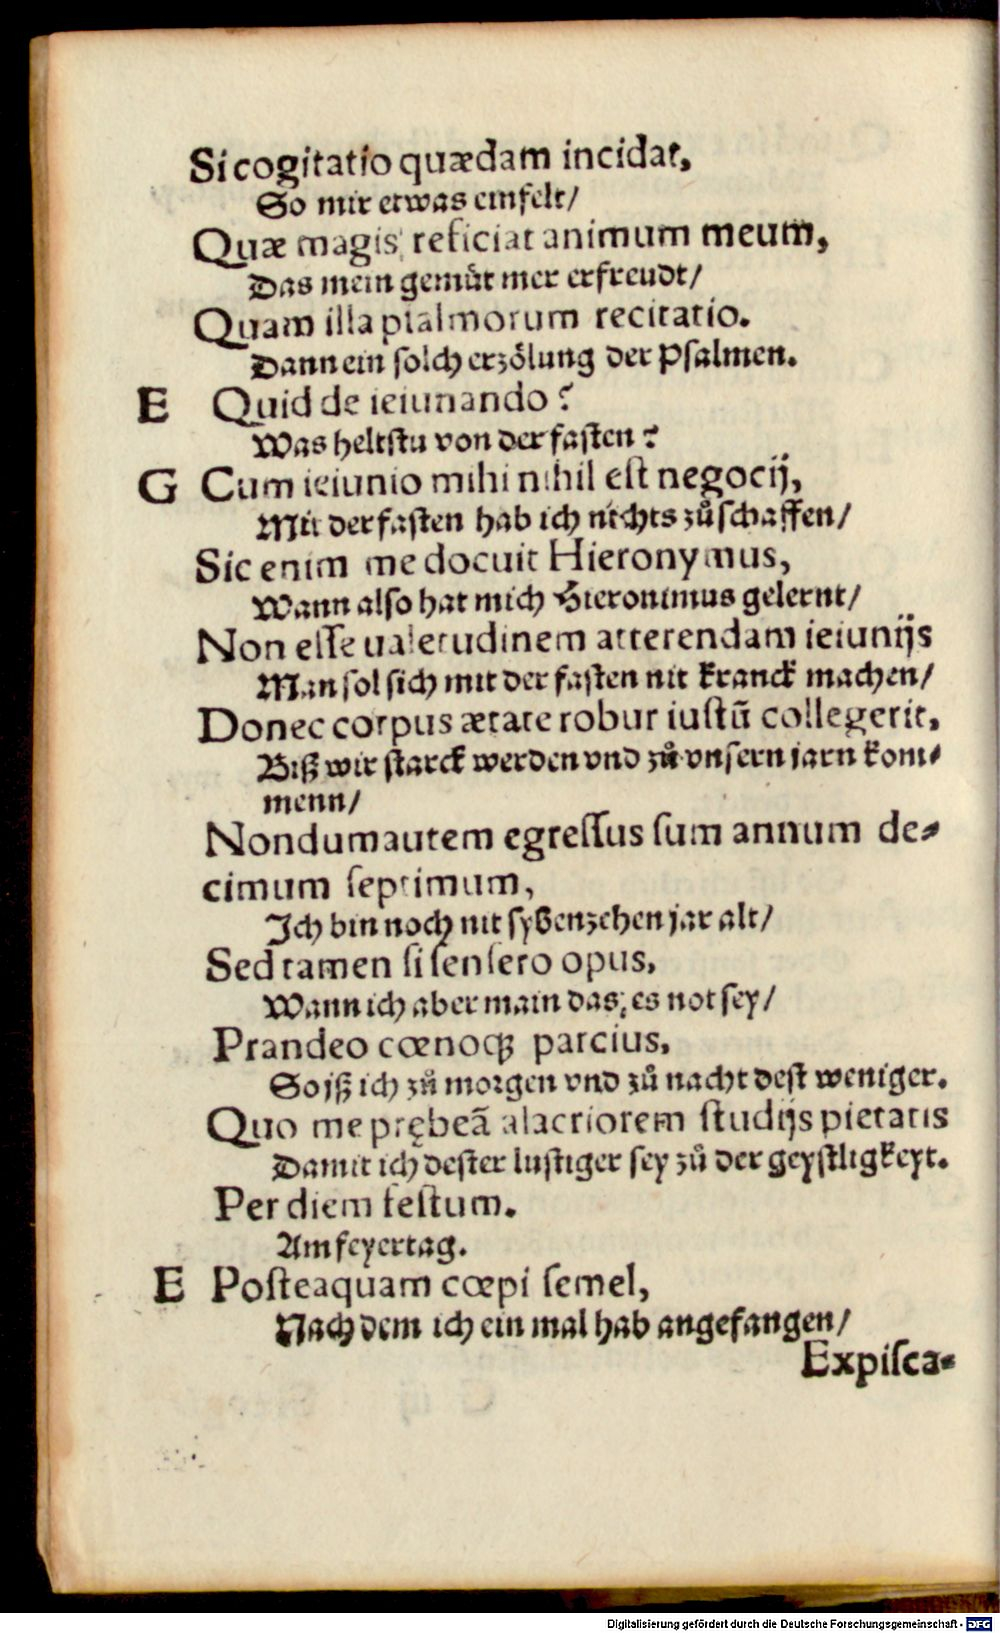 Si cogitatio quædam incidat,
So mir etwas einfelt/
Quæ magis reficiat animum meum,
Das mein gemüt mer erfreudt/
Quam illa psalmorum recitatio.
Dann ein solch erzölung der Psalmen.
E Quid de ieiunando?
Was heltstu von der fasten?
G Cum ieiunio mihi nihil est negocij,
Mit der fasten hab ich nichts zů schaffen/
Sic enim me docuit Hieronymus,
Wann also hat mich Hieronimus gelernt/
Non esse ualetudinem atterendam ieiunijs
Man sol sich mit der fasten nit kranck machen/
Donec corpus ætate robur iustū collegerit,
Biß wir starck werden vnd zů vnsern jarn kom⸗
menn/
Nondum autem egressus sum annum de⸗
cimum septimum,
Ich bin noch nit sybenzehen jar alt/
Sed tamen si sensero opus,
Wann ich aber main das es not sey/
Prandeo cœnoqꝫ parcius,
So jß ich zů morgen vnd zů nacht dest weniger.
Quo me prębeā alacriorem studijs pietatis
Damit ich dester lustiger sey zů der geystligkeyt.
Per diem festum.
Am feyertag.
E Posteaquam cœpi semel,
Nach dem ich ein mal hab angefangen/
Expisca⸗
Digitalisierung gefördert durch die Deutsche Forschungsgemeinschaft - DFG